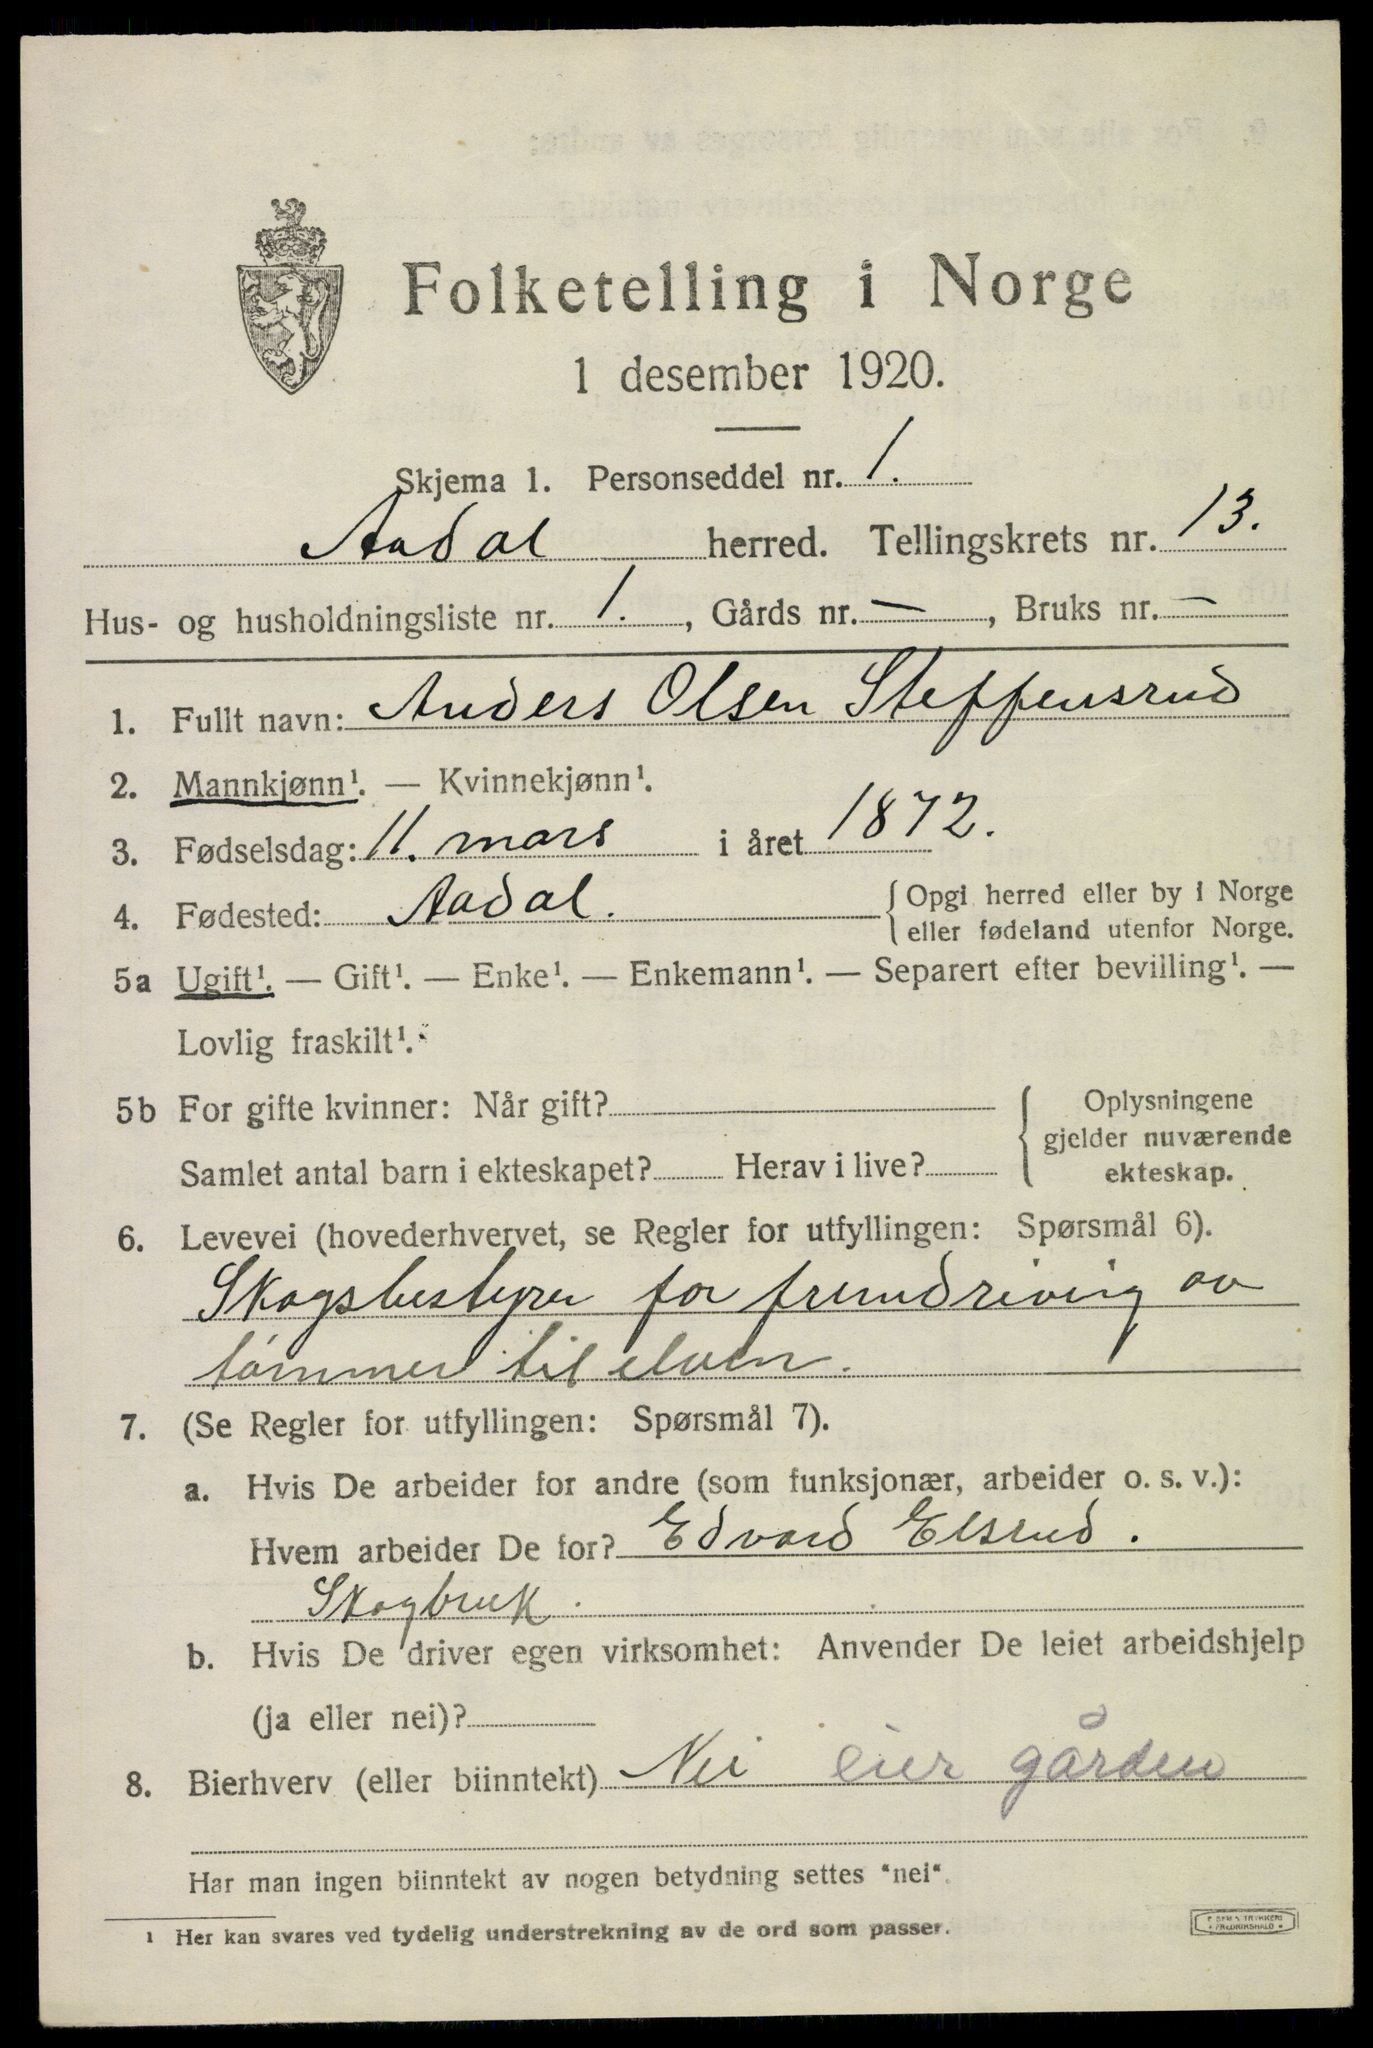 Folketelling i Norge
1 desember 1920.
Skjema 1. Personseddel nr. 1.
Aadal herred. Tellingskrets nr. 13.
Hus- og husholdningsliste nr. 1., Gårds nr. —, Bruks nr. —
1. Fullt navn: Anders Olsen Steffensrud
2. Mannkjønn¹. — Kvinnekjønn¹.
3. Fødselsdag: 11. mars i året 1872.
4. Fødested: Aadal. { Opgi herred eller by i Norge
eller fødeland utenfor Norge.
5a Ugift¹. — Gift¹. — Enke¹. — Enkemann¹. — Separert efter bevilling¹. —
Lovlig fraskilt¹.
5b For gifte kvinner: Når gift? { Oplysningene
gjelder nuværende
Samlet antal barn i ekteskapet? Herav i live? ekteskap.
6. Levevei (hovederhvervet, se Regler for utfyllingen: Spørsmål 6).
Skogsbestyrer for fremdriving av
tømmer til elven.
7. (Se Regler for utfyllingen: Spørsmål 7).
a. Hvis De arbeider for andre (som funksjonær, arbeider o. s. v.):
Hvem arbeider De for? Edvard Elsrud.
Skogbruk.
b. Hvis De driver egen virksomhet: Anvender De leiet arbeidshjelp
(ja eller nei)?
8. Bierhverv (eller biinntekt) Nei eier gården
Har man ingen biinntekt av nogen betydning settes "nei".
¹ Her kan svares ved tydelig understrekning av de ord som passer.